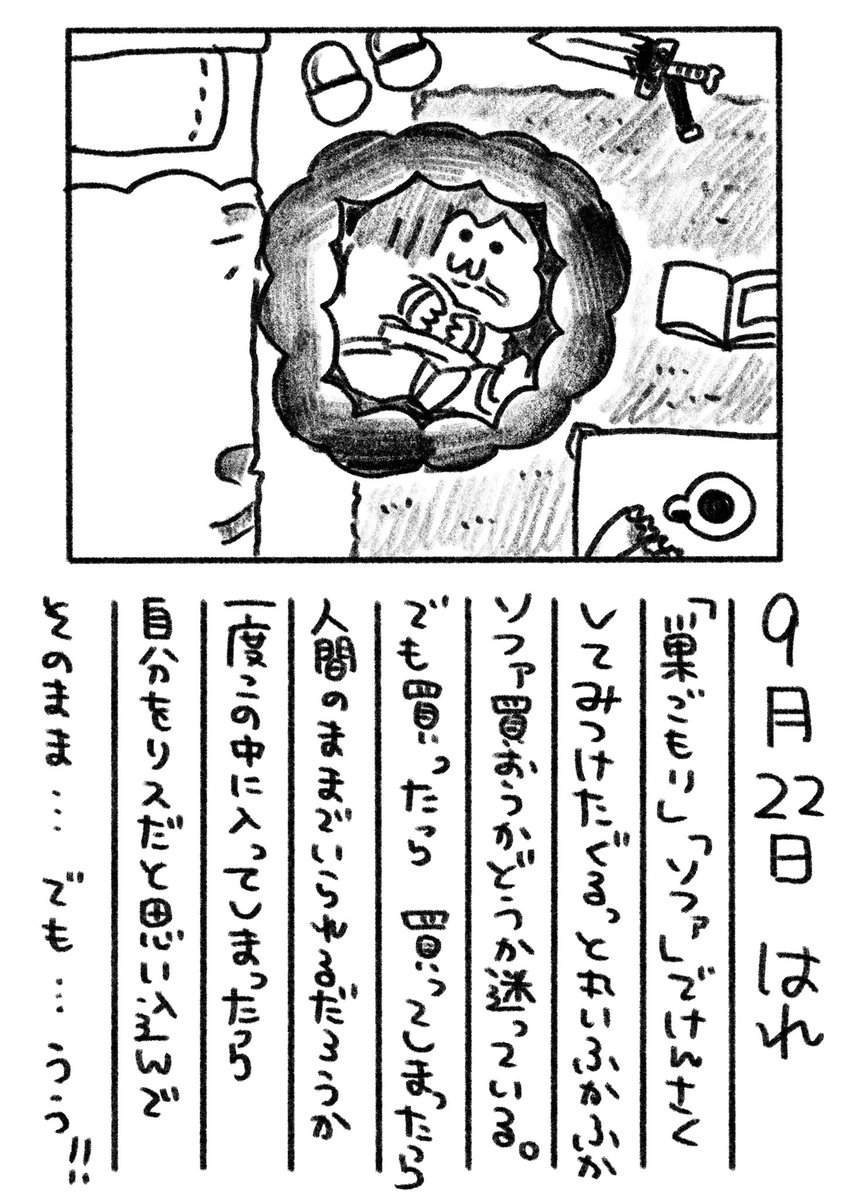 9月22日 はれ
「巣ごもり」「ソファ」でけんさく
してみつけたぐるっと丸いふかふか
ソファ買おうかどうか迷っている。
でも買ったら 買ってしまったら
人間のままでいられるだろうか
一度この中に入ってしまったら
自分をリスだと思い込んで
そのまま… でも… うう!!